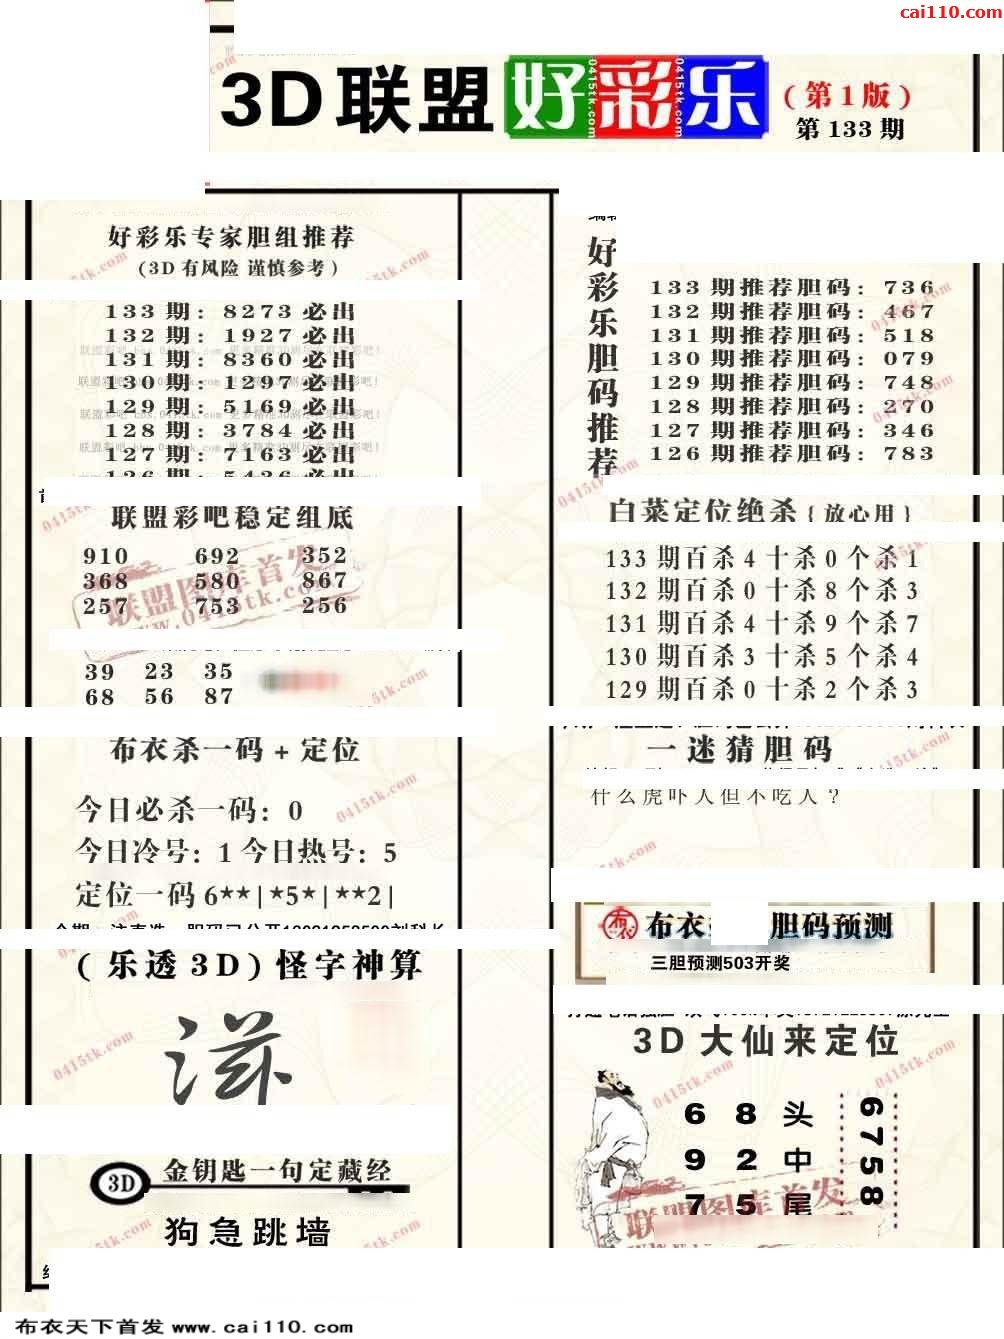 cai110.com
3D联盟好彩乐
(第1版)
第133期
好彩乐专家胆组推荐
(3D有风险 谨慎参考)
133期: 8273必出
132期: 1927必出
131期: 8360必出
130期: 1297必出
129期: 5169必出
128期: 3784必出
127期: 7163必出
联盟彩吧稳定组底
910 692 352
368 580 867
257 753 256
39 23 35
68 56 87
布衣杀一码+定位
今日必杀一码: 0
今日冷号: 1 今日热号: 5
定位一码 6**|*5*|**2|
(乐透3D)怪字神算
滋
3D 金钥匙一句定藏经
狗急跳墙
好彩乐胆码推荐
133期推荐胆码: 736
132期推荐胆码: 467
131期推荐胆码: 518
130期推荐胆码: 079
129期推荐胆码: 748
128期推荐胆码: 270
127期推荐胆码: 346
126期推荐胆码: 783
白菜定位绝杀{放心用}
133期百杀4十杀0个杀1
132期百杀0十杀8个杀3
131期百杀4十杀9个杀7
130期百杀3十杀5个杀4
129期百杀0十杀2个杀3
一迷猜胆码
什么虎吓人但不吃人?
布衣 胆码预测
三胆预测503开奖
3D大仙来定位
6 8 头
9 2 中
7 5 尾
6758
联盟图库首发
www.0415tk.com
布衣天下首发 www.cai110.com